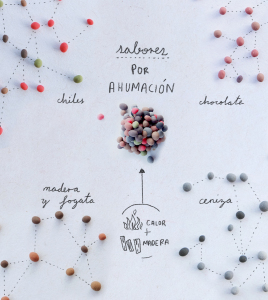 sabores
POR
AHUMACIÓN
chiles
chocolate
madera
y fogata
ceniza
CALOR
+
MADERA